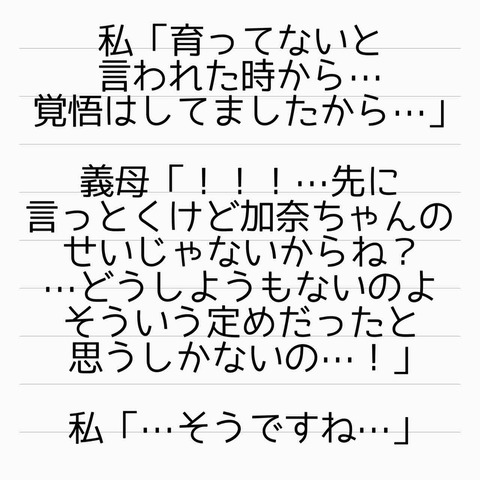 私「育ってないと
言われた時から…
覚悟はしてましたから…」
義母「！！！…先に
言っとくけど加奈ちゃんの
せいじゃないからね？
…どうしようもないのよ
そういう定めだったと
思うしかないの…！」
私「…そうですね…」